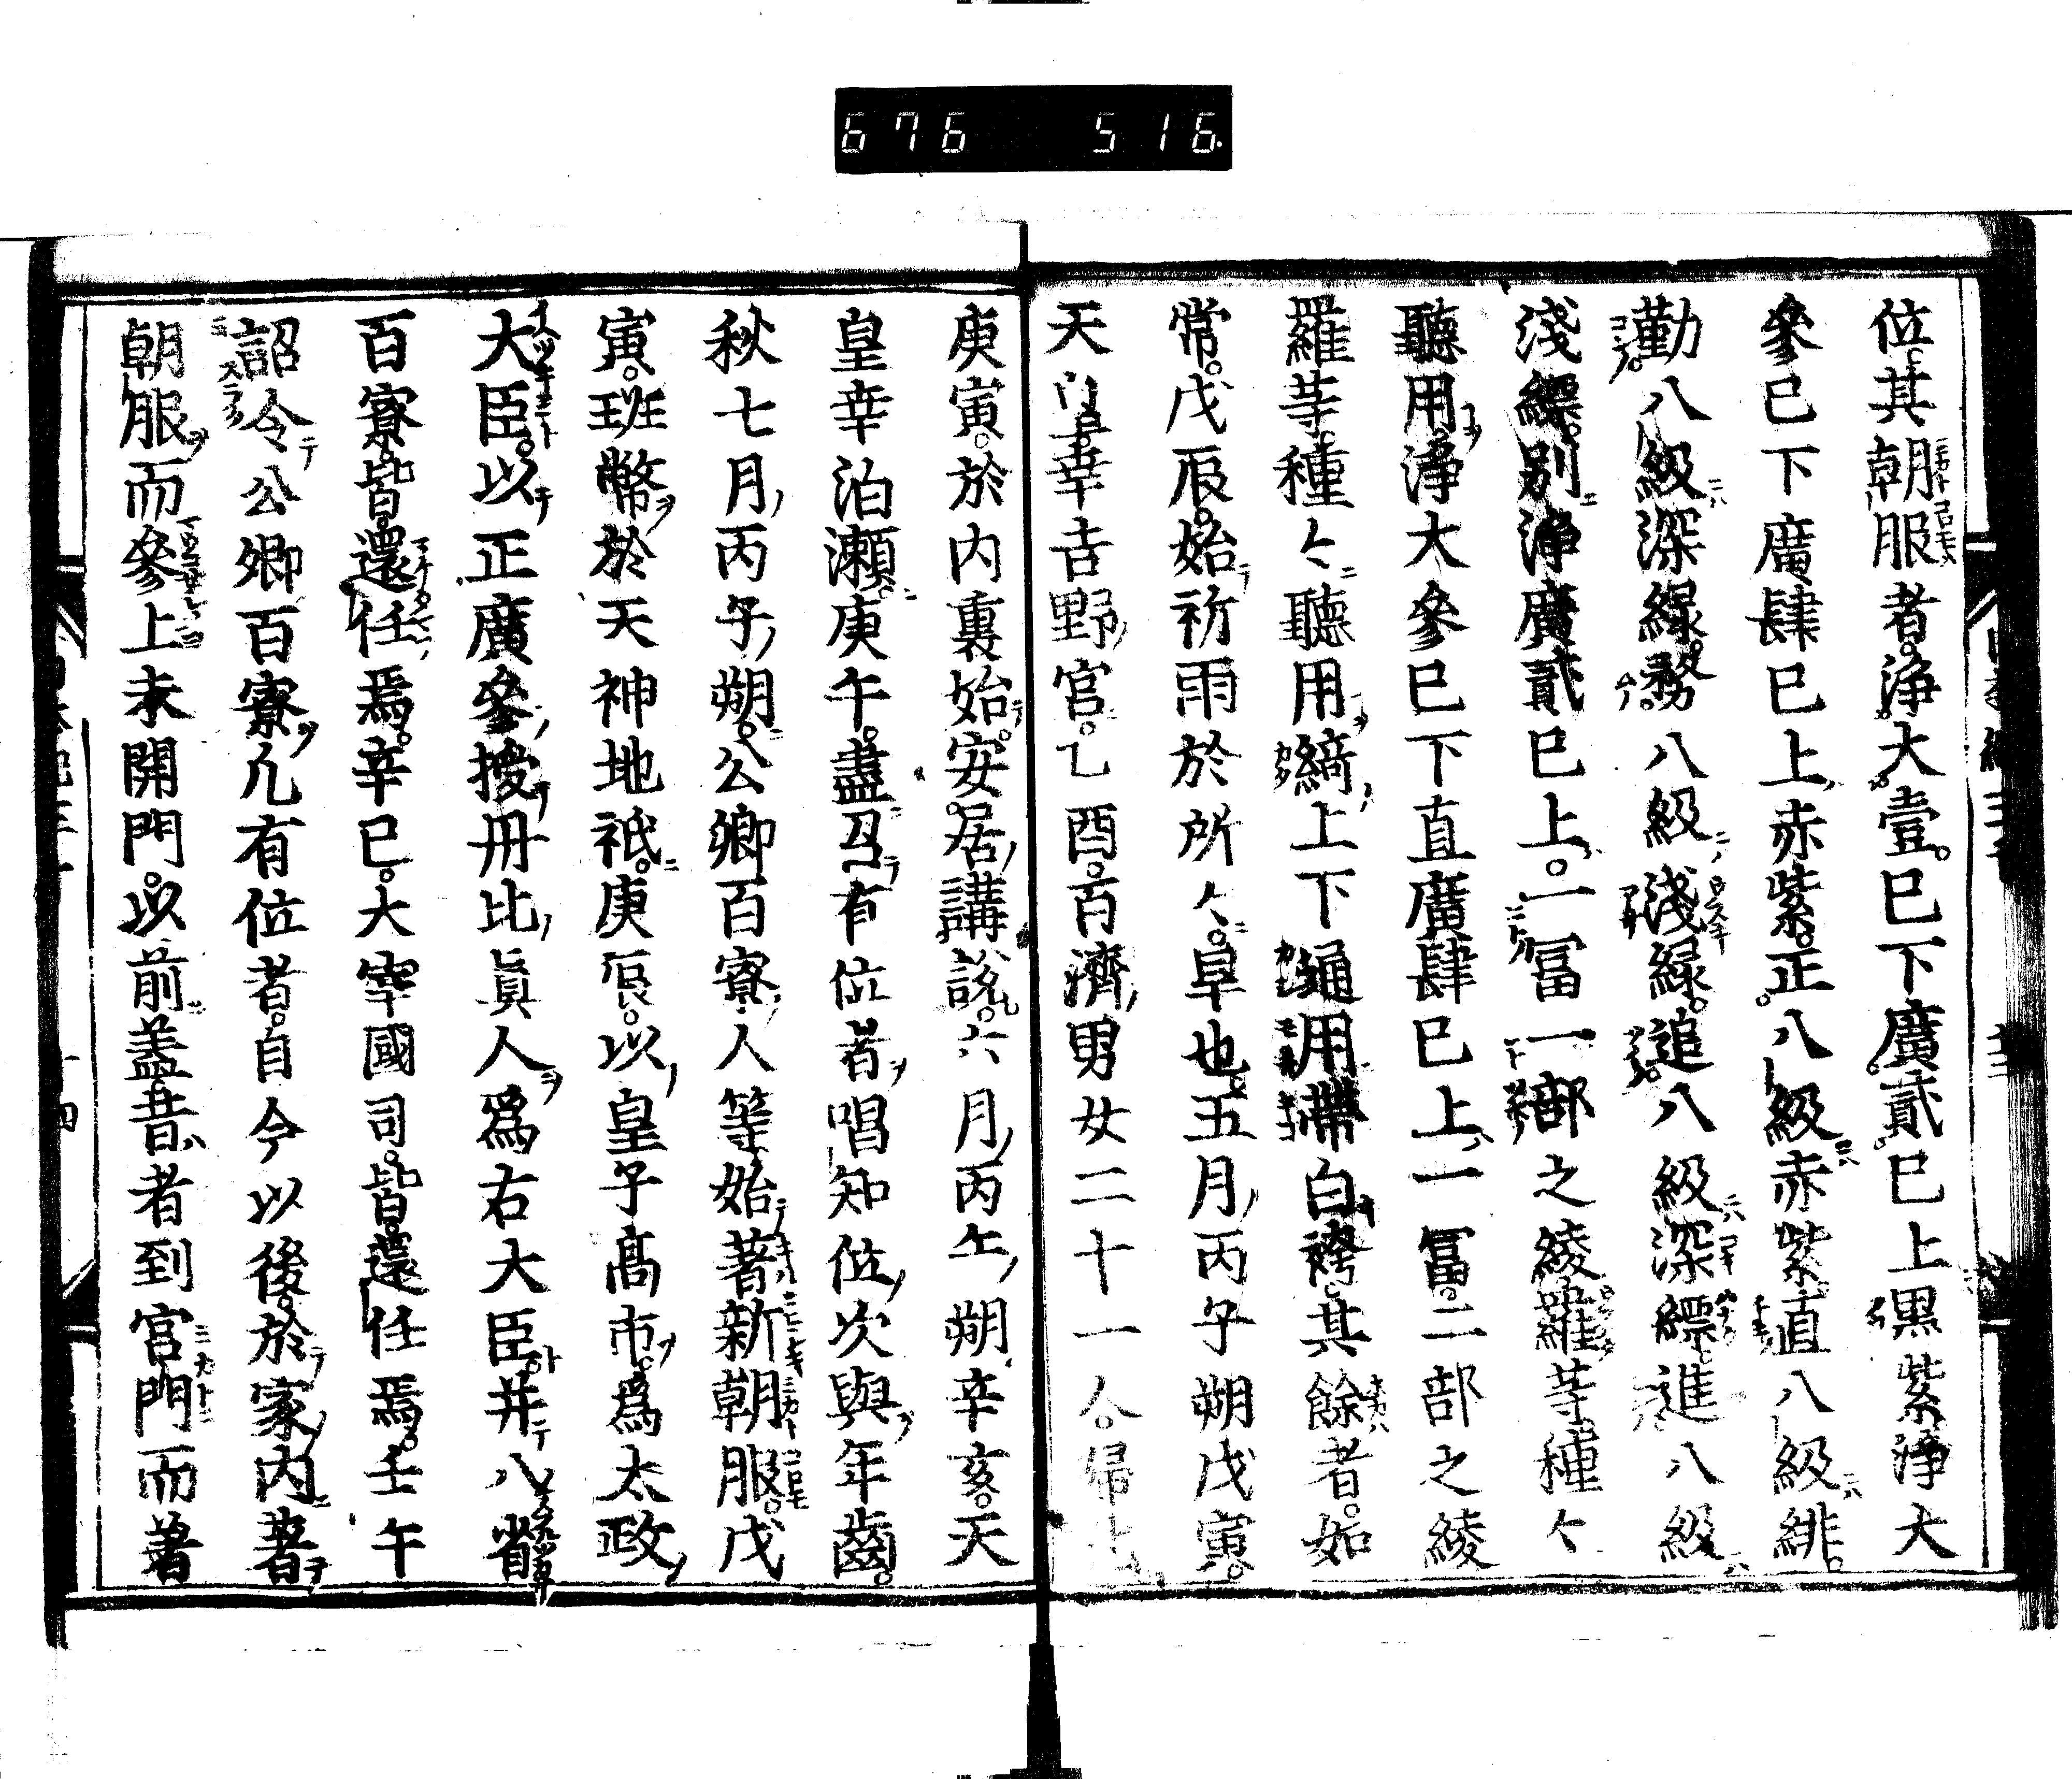 676 516
位其朝服者淨大壹巳下廣貳巳上黒紫淨大
參巳下廣肆巳上赤紫正八級赤紫直八級緋
勤八級深綠務八級淺綠追八級深縹進八級
淺縹別淨廣貳巳上一冨一部之綾羅䓁種々
聽用淨大參巳下直廣肆巳上一冨二部之綾
羅䓁種々聽用綺上下通用帶白袴其餘者如
常戊辰始祈雨於所々旱也五月丙子朔戊寅
天皇幸吉野宮乙酉百濟男女二十一人歸
庚寅於内裏始安居講說六月丙午朔辛亥天
皇幸泊瀬庚午盡召有位者唱知位次與年齒
秋七月丙子朔公卿百寮人等始著新朝服戊
寅班幣於天神地祇庚辰以皇子髙市爲太政
大臣以正廣參授丹比眞人爲右大臣并八省
百寮皆還任焉辛巳大宰國司皆還任焉壬午
詔令公卿百寮凢有位者自今以後於家内著
朝服而參上未開門以前盖昔者到宮門而著